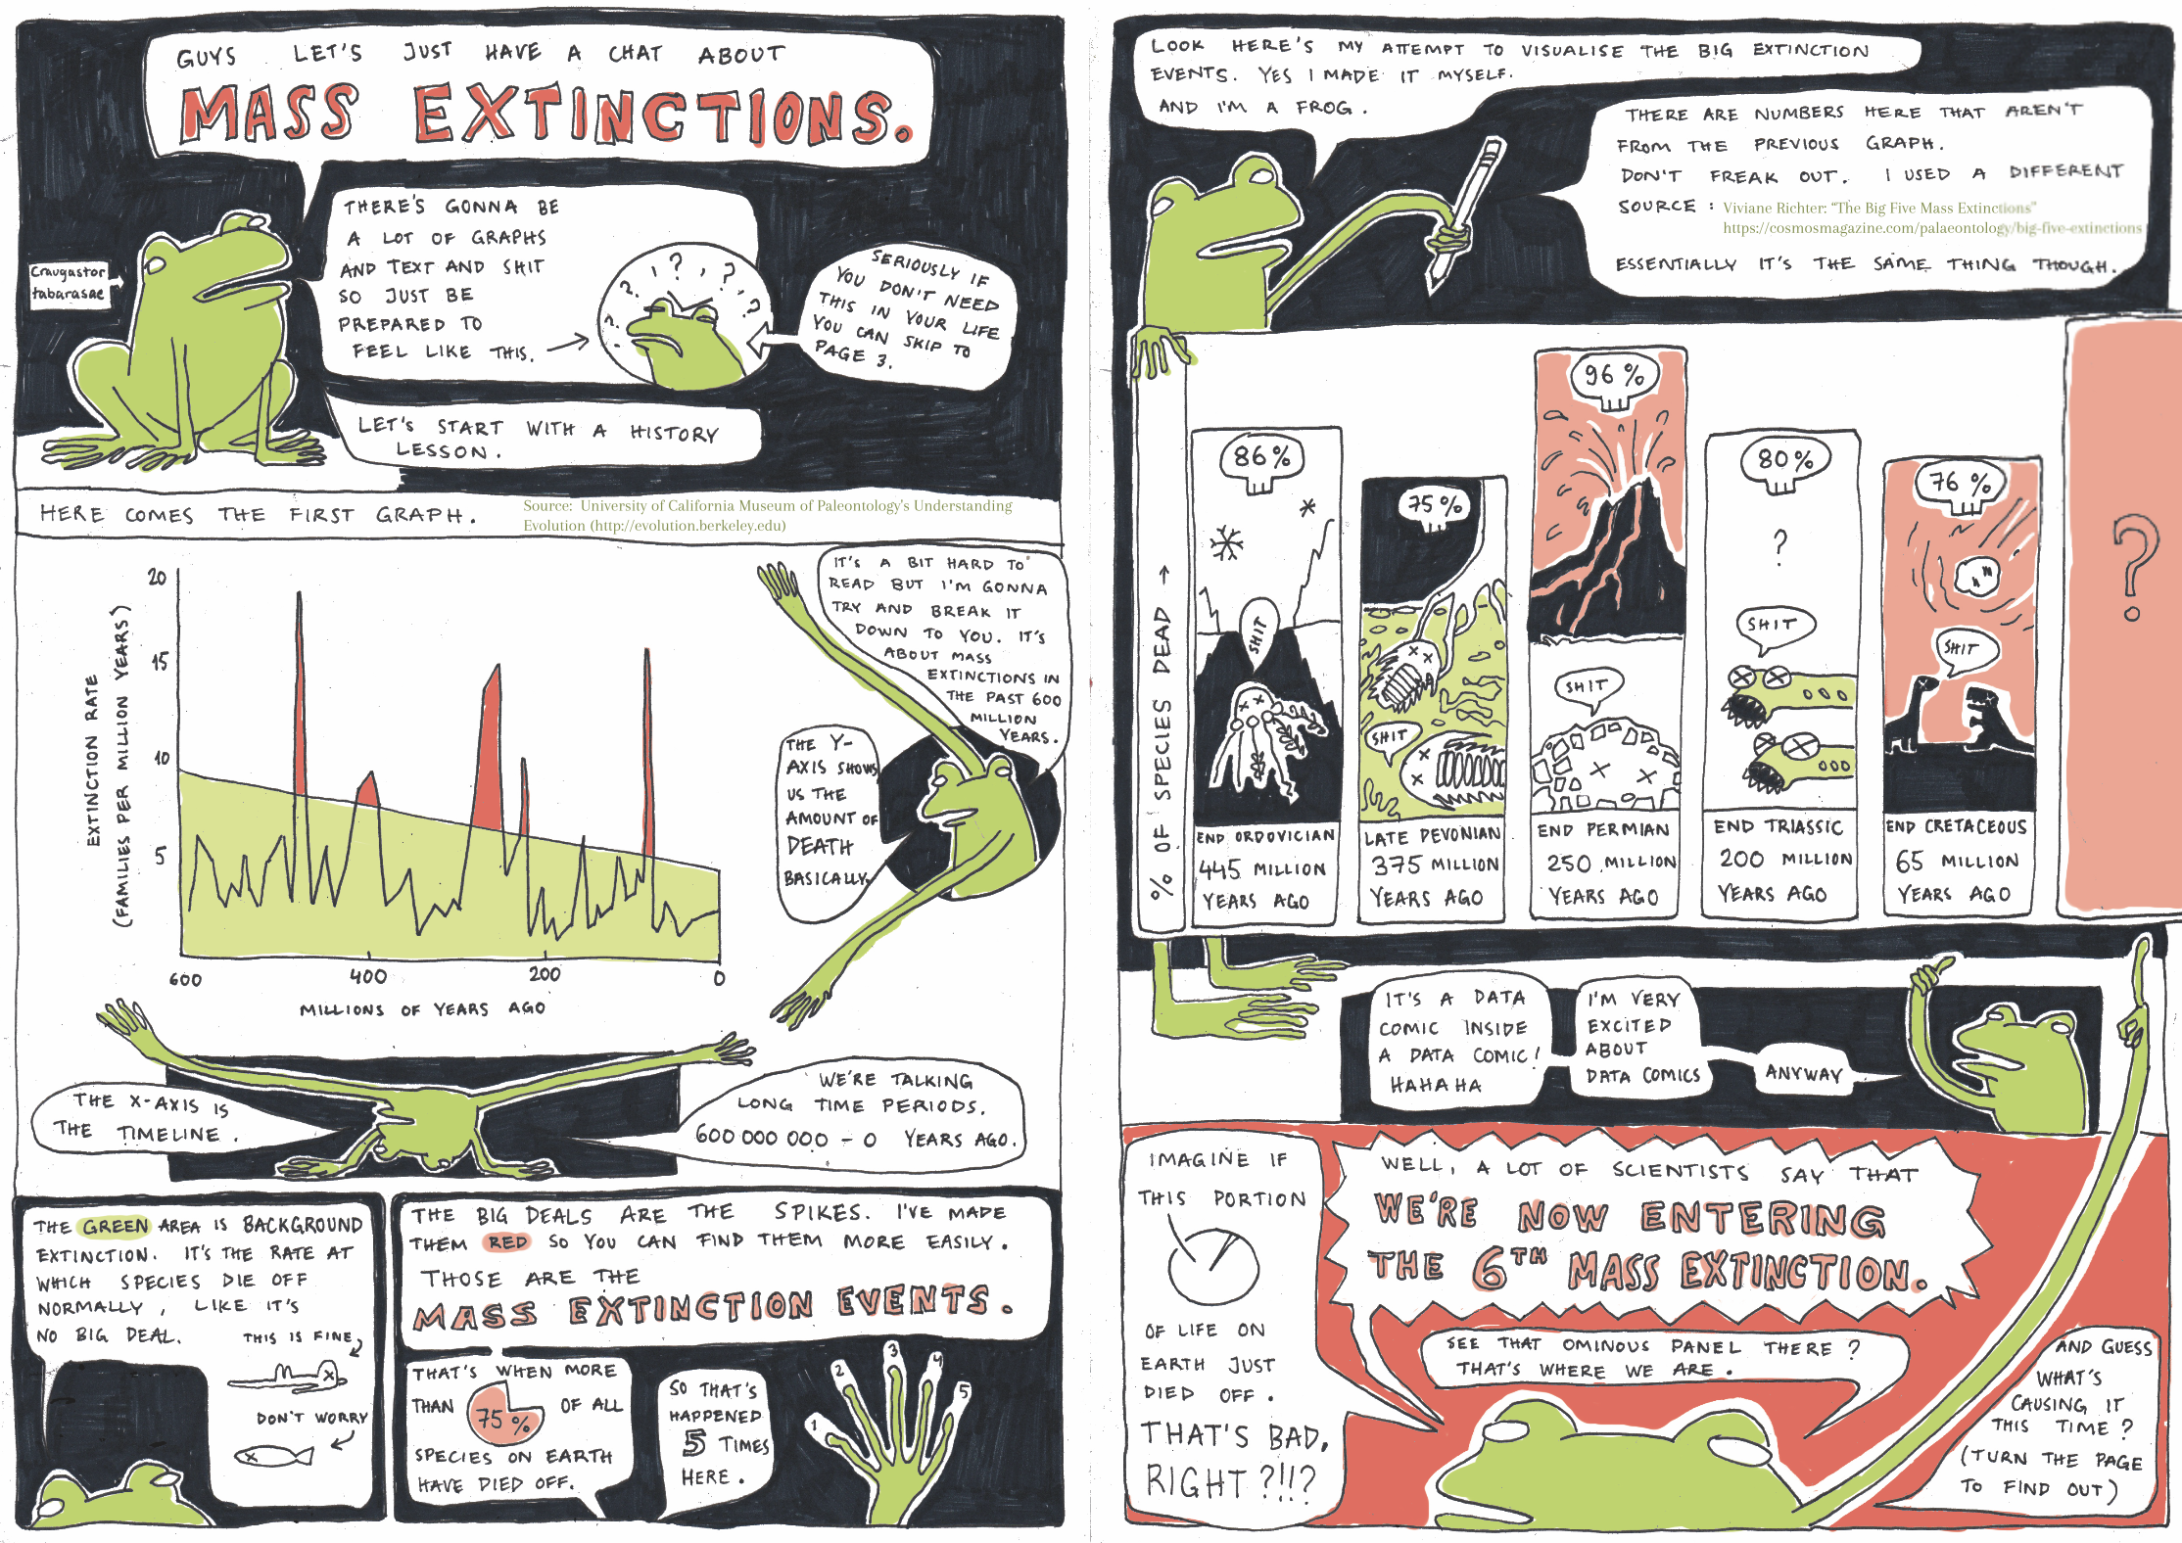 GUYS LET'S JUST HAVE A CHAT ABOUT
MASS EXTINCTIONS.
THERE'S GONNA BE
A LOT OF GRAPHS
AND TEXT AND SHIT
SO JUST BE
PREPARED TO
FEEL LIKE THIS.
? ? ? ?
SERIOUSLY IF
YOU DON'T NEED
THIS IN YOUR LIFE
YOU CAN SKIP TO
PAGE 3.
Craugastor
tabarasae
LET'S START WITH A HISTORY
LESSON.
HERE COMES THE FIRST GRAPH.
Source: University of California Museum of Paleontology's Understanding
Evolution (http://evolution.berkeley.edu)
EXTINCTION RATE
(FAMILIES PER MILLION YEARS)
20
15
10
5
600
400
200
0
MILLIONS OF YEARS AGO
IT'S A BIT HARD TO
READ BUT I'M GONNA
TRY AND BREAK IT
DOWN TO YOU. IT'S
ABOUT MASS
EXTINCTIONS IN
THE PAST 600
MILLION
YEARS.
THE Y-
AXIS SHOWS
US THE
AMOUNT OF
DEATH
BASICALLY.
THE X-AXIS IS
THE TIMELINE.
WE'RE TALKING
LONG TIME PERIODS.
600 000 000 - 0 YEARS AGO.
THE GREEN AREA IS BACKGROUND
EXTINCTION. IT'S THE RATE AT
WHICH SPECIES DIE OFF
NORMALLY, LIKE IT'S
NO BIG DEAL.
THIS IS FINE
DON'T WORRY
THE BIG DEALS ARE THE SPIKES. I'VE MADE
THEM RED SO YOU CAN FIND THEM MORE EASILY.
THOSE ARE THE
MASS EXTINCTION EVENTS.
THAT'S WHEN MORE
THAN 75% OF ALL
SPECIES ON EARTH
HAVE DIED OFF.
SO THAT'S
HAPPENED
5 TIMES
HERE.
1
2
3
4
5
LOOK HERE'S MY ATTEMPT TO VISUALISE THE BIG EXTINCTION
EVENTS. YES I MADE IT MYSELF.
AND I'M A FROG.
THERE ARE NUMBERS HERE THAT AREN'T
FROM THE PREVIOUS GRAPH.
DON'T FREAK OUT. I USED A DIFFERENT
SOURCE: Viviane Richter: "The Big Five Mass Extinctions"
https://cosmosmagazine.com/palaeontology/big-five-extinctions
ESSENTIALLY IT'S THE SAME THING THOUGH.
% OF SPECIES DEAD →
86%
SHIT
END ORDOVICIAN
445 MILLION
YEARS AGO
75%
SHIT
LATE DEVONIAN
375 MILLION
YEARS AGO
96%
SHIT
END PERMIAN
250 MILLION
YEARS AGO
80%
?
SHIT
END TRIASSIC
200 MILLION
YEARS AGO
76%
SHIT
END CRETACEOUS
65 MILLION
YEARS AGO
?
IT'S A DATA
COMIC INSIDE
A DATA COMIC!
HAHAHA
I'M VERY
EXCITED
ABOUT
DATA COMICS
ANYWAY
IMAGINE IF
THIS PORTION
OF LIFE ON
EARTH JUST
DIED OFF.
THAT'S BAD,
RIGHT?!!?
WELL, A LOT OF SCIENTISTS SAY THAT
WE'RE NOW ENTERING
THE 6TH MASS EXTINCTION.
SEE THAT OMINOUS PANEL THERE?
THAT'S WHERE WE ARE.
AND GUESS
WHAT'S
CAUSING IT
THIS TIME?
(TURN THE PAGE
TO FIND OUT)